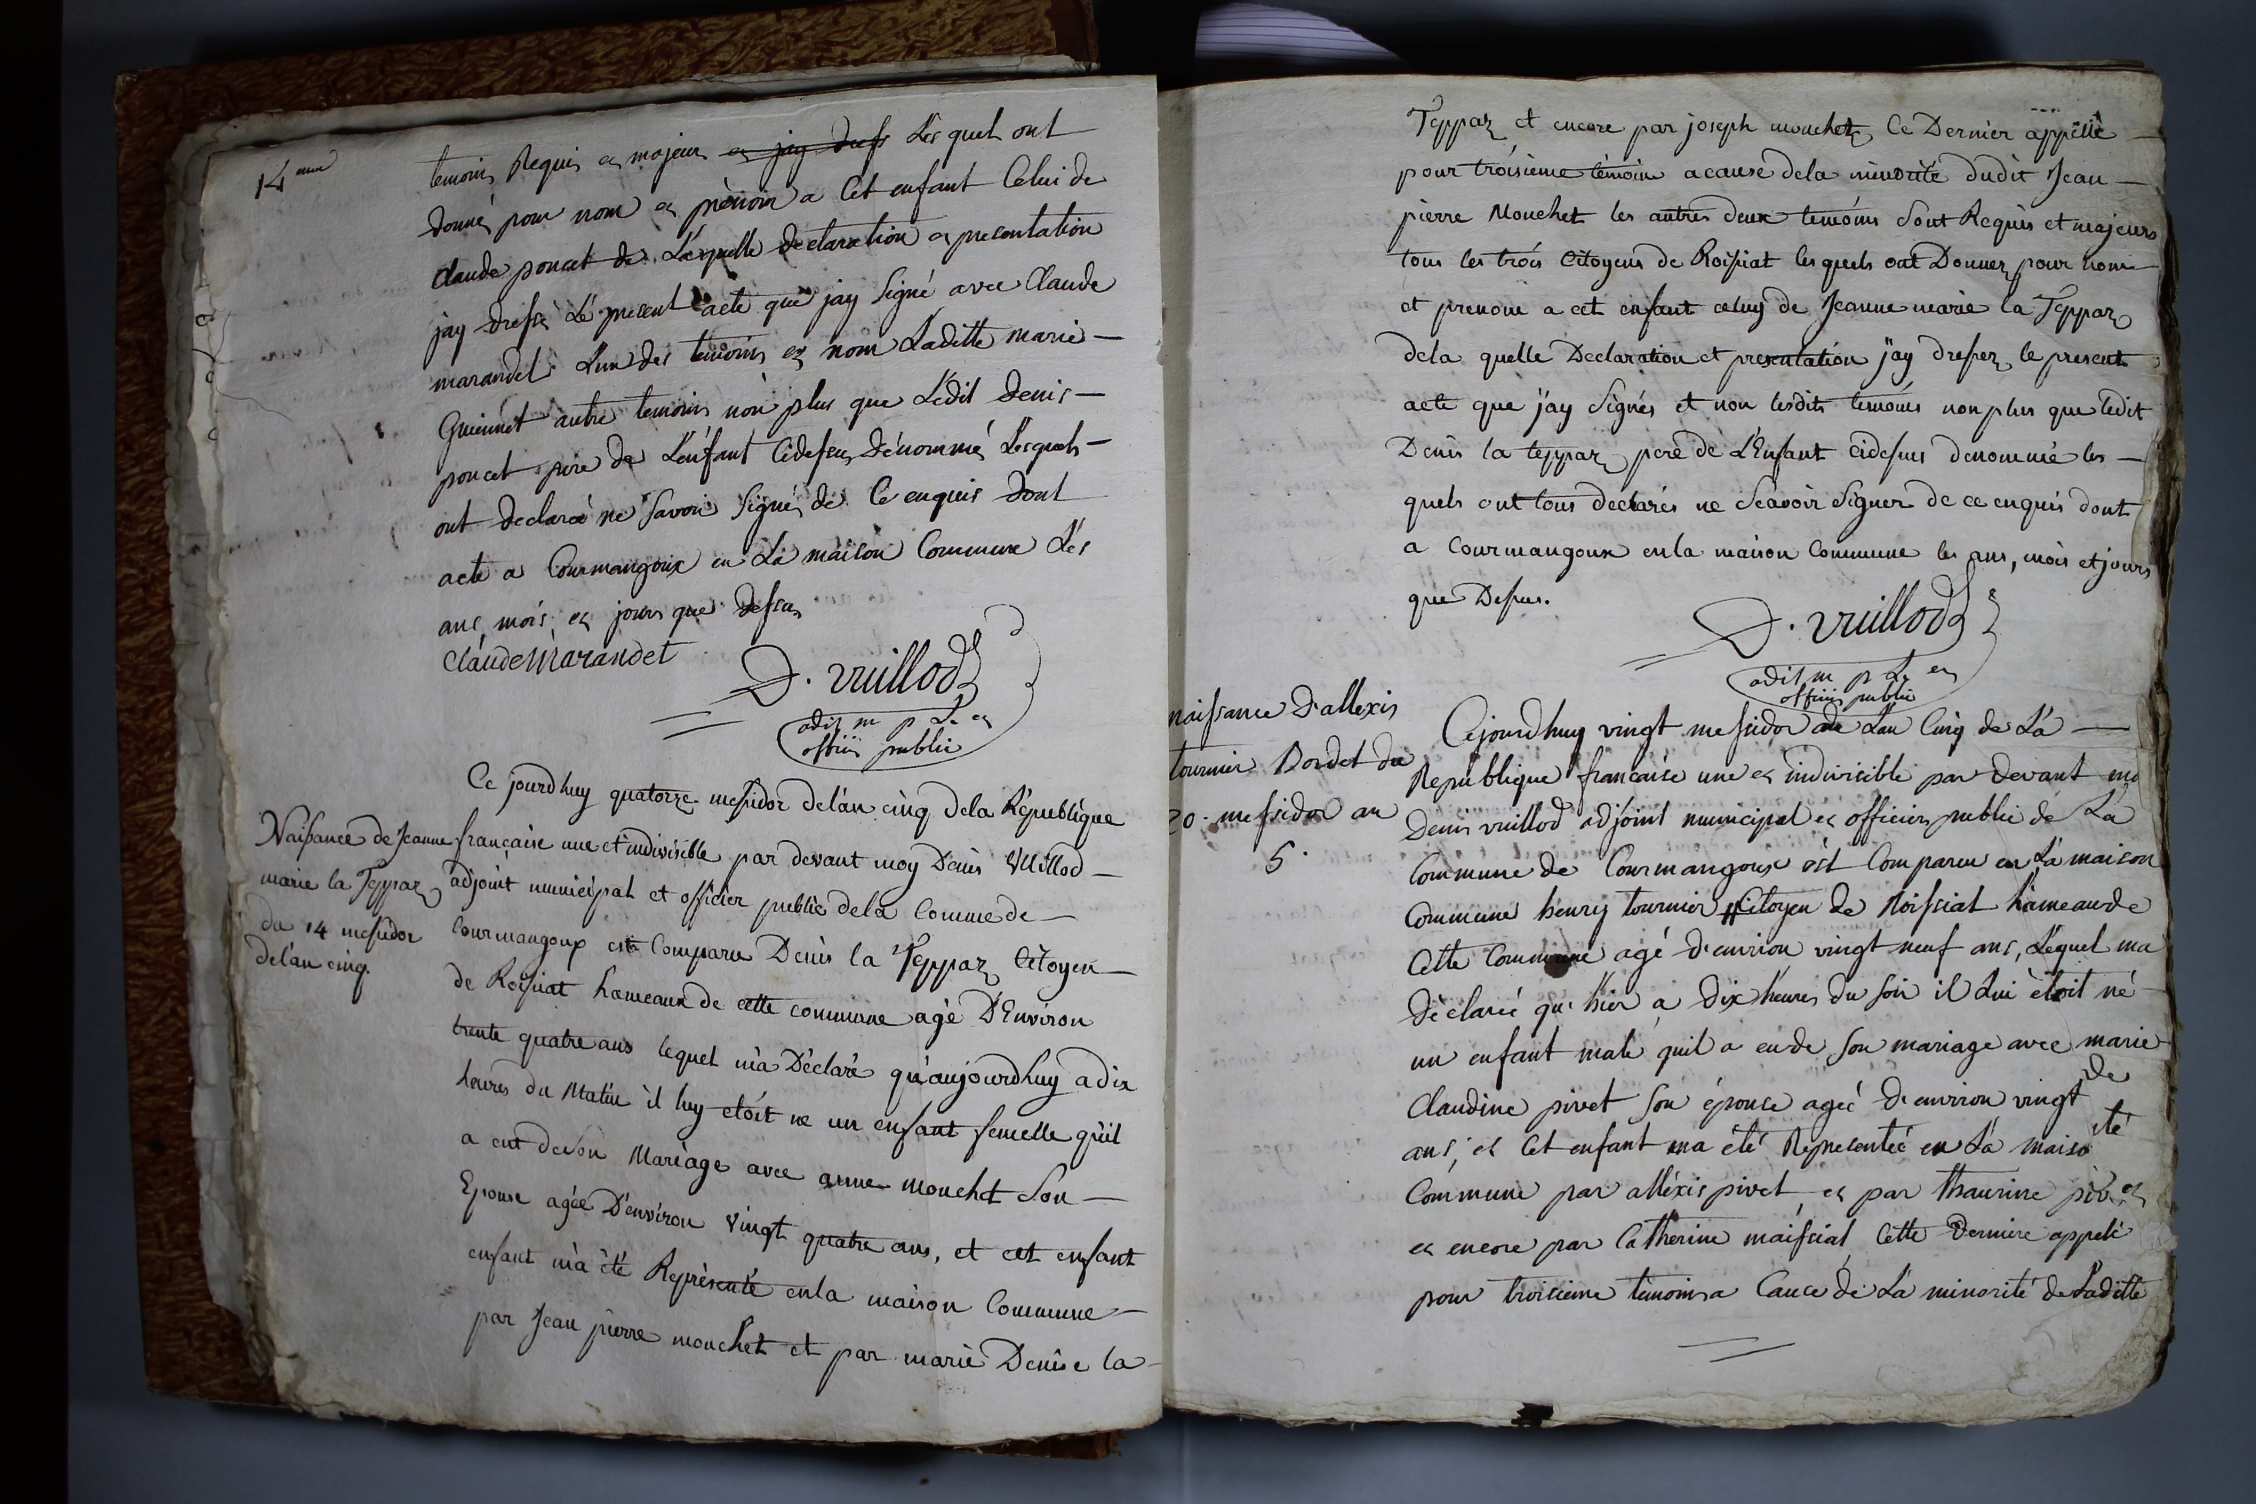 14 eme
temoins Requis et majeurs et jay dress Lesquel ont
donné pour nom et prénom a Cet enfant Celui de
Claude poncet de Laquelle declaration et presentation
jay dressé Le present acte que jay Signé avec Claude
marandet L'un des temoins et nom Laditte marie
Guiennet autre temoins non plus que Ledit Denis
poncet pere de L'enfant Cidessus dénommé Lesquels
ont declaréé ne Savoir Signés de Ce enquis Dont
acte a Courmangoux en La maison Commune Les
ans, mois, et jours que dessus
Claude Marandet
D. vuillod
adit m p L et
officié public
Naissance de Jeanne
marie la Teppaz
du 14 messidor
de l'an cinq.
Ce jourdhuy quatorze messidor de l'an cinq de la République
française une et indivisible par devant moy Denis Vuillod
adjoint municipal et officier public de la Comme de
Courmangoux est Comparu Denis la Teppaz Citoyen
de Roissiat hameaux de cette commune agé D'Environ
trente quatre ans lequel m'a Déclaré qu'aujourdhuy a dix
heures du Matin il luy etoit ne un enfant femelle qu'il
a eut de son Mariage avec anne mouchet Son
Epouse agée D'environ vingt quatre ans, et cet enfant
enfant m'a été Représenté en la maison Commune
par Jean pierre mouchet et par marie Denise la
Teppaz et encore par joseph mouchet Ce Dernier appellé
pour troisieme témoin a cause de la minorité dudit Jean
pierre Mouchet les autres deux temoins Sont Requis et majeurs
tous les trois Citoyens de Roissiat lesquels ont Donner pour nom
et prenom a cet enfant celuy de Jeanne marie la Teppaz
de la quelle Declaration et presentation j'ay dresser le present
acte que j'ay Signés et non lesdits temoins non plus que ledit
Denis la teppaz pere de L'Enfant cidessus denommé les
quels ont tous declarés ne Scavoir Signer de ce enquis dont
a Courmangoux en la maison Commune les ans, mois et jours
que Dessus.
D. vuillod
adit m p L et
officié public
naissance D'allexis
tournier Bordet du
20. messidor an
5.
Cejourdhuy vingt messidor de L'an Cinq de La
Republique française une et indivisible par Devant mo
Denis vuillod adjoint municipal et officier public de La
Commune de Courmangoux est Comparu en La maison
Commune henry tournier Citoyen de Roissiat hameau de
Cette Commune agé d'environ vingt neuf ans, Lequel ma
Déclaré qu'hier a Dix heures du soir il Lui étoit né
un enfant male quil a eu de Son mariage avec marie
Claudine pivet Son épouse ageé d'environ vingt de
ans, et Cet enfant ma été Representéé en La maiso
Commune par alléxis pivet et par Thaurine
et encore par Catherine maissiat Cette derniere appelé
pour troisieme temoins a Cauce de La minorité de Laditte